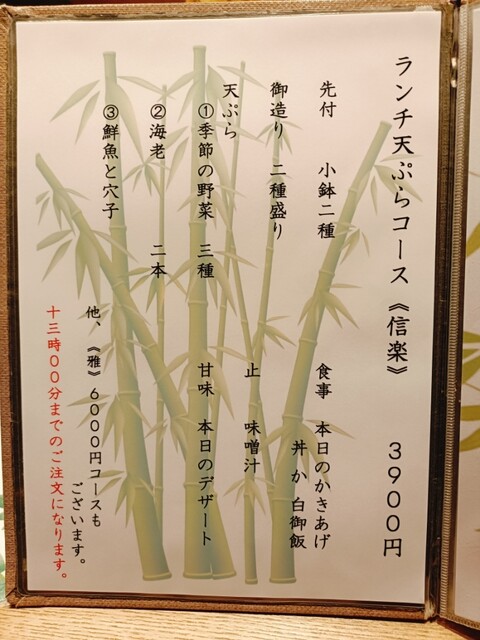 ランチ天ぷらコース《信楽》 3900円
先付 小鉢二種
御造り 二種盛り
天ぷら
①季節の野菜 三種
②海老 二本
③鮮魚と穴子
食事 本日のかきあげ
丼 か 白御飯
止 味噌汁
甘味 本日のデザート
他、《雅》6000円コースも
ございます。
十三時00分までのご注文になります。